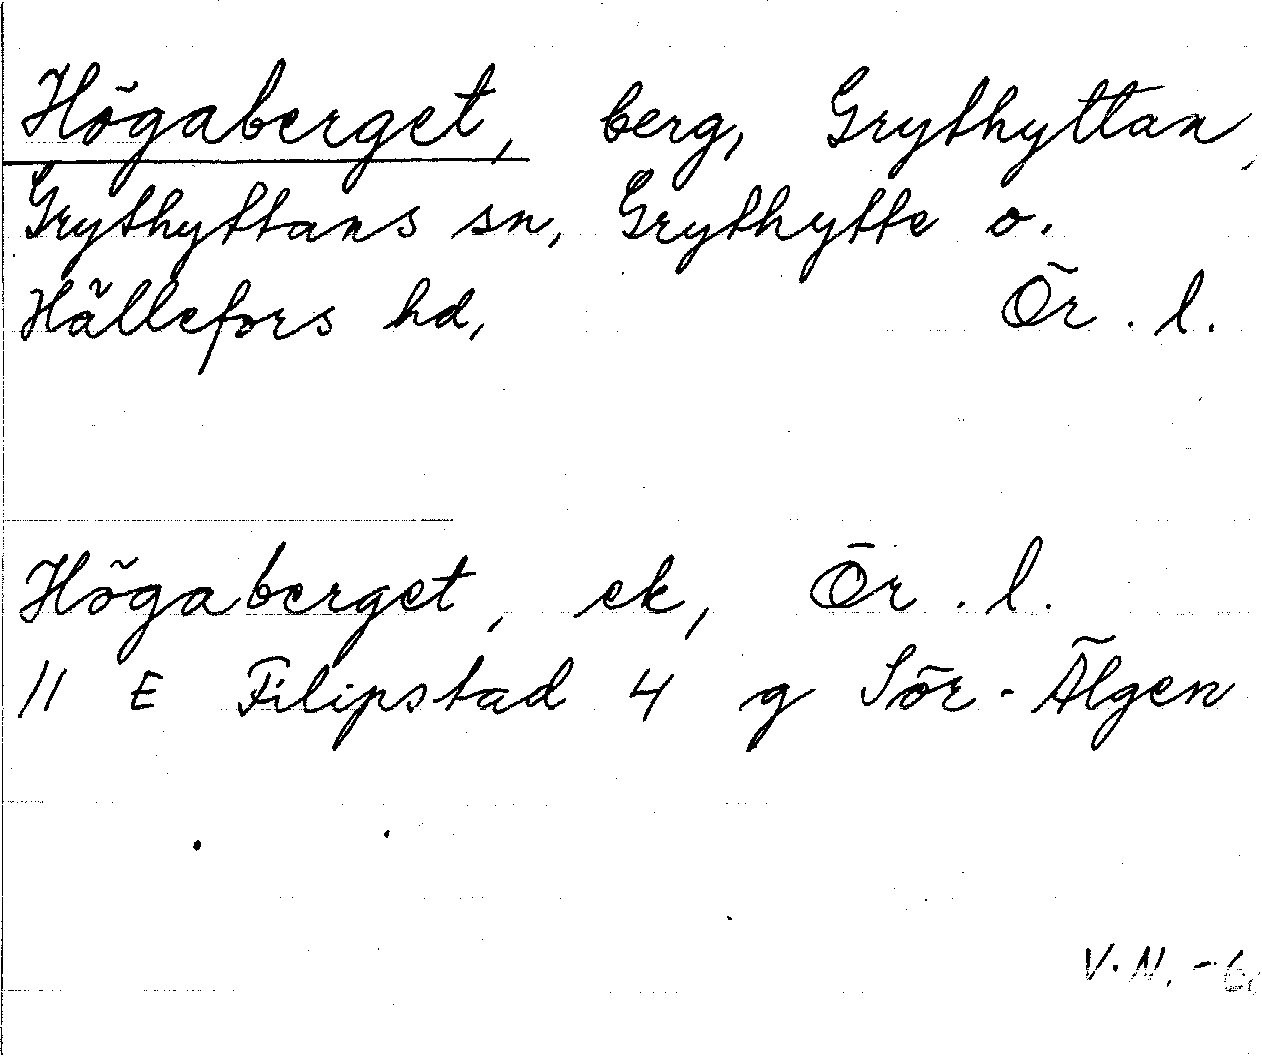 Högaberget, berg, Grythyttan,
Grythyttans sn, Grythytte o.
Hällefors hd, Ör. l.
Högaberget, ek, Ör. l.
11 E Filipstad 4 g Sör-Älgen
V.N. -6